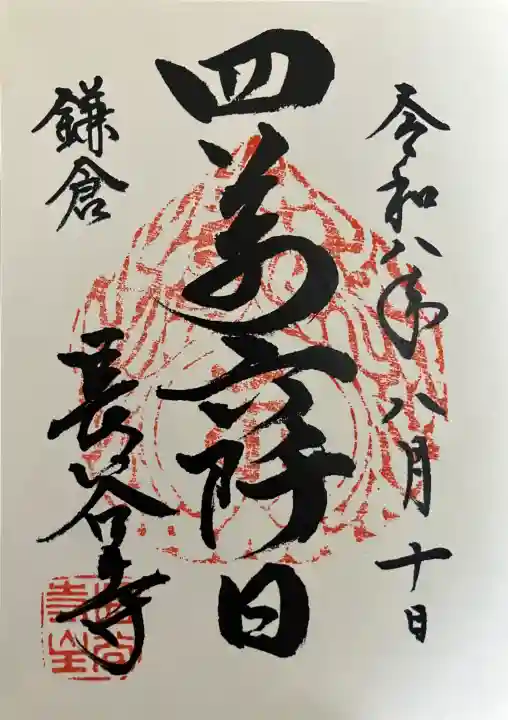 令和八年八月十日
四萬六阡日
鎌倉
長谷寺